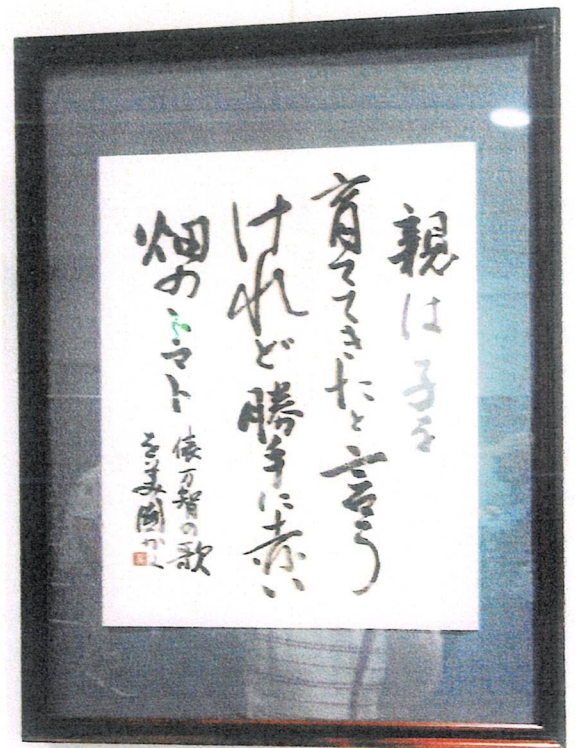 親は子を
育ててきたと言う
けれど勝手に赤い
畑のトマト
俵万智の歌